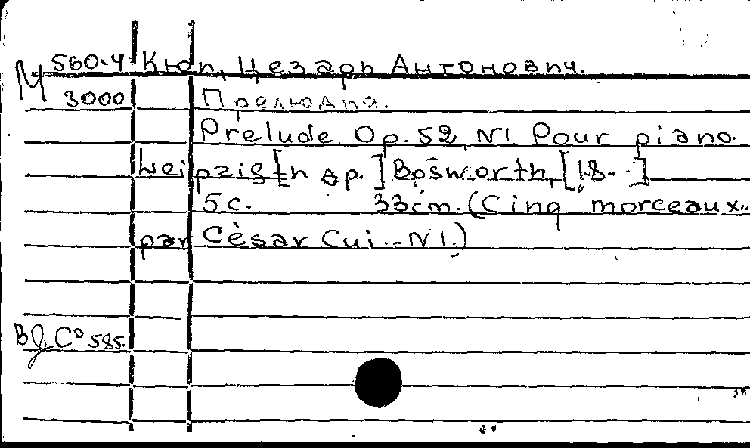 М 560-4 Кюи, Цезарь Антонович.
3000 Прелюдия.
Prelude Op. 52, N1. Pour piano.
Leipzig [и др.] Bosworth, [18--]
5 с. 33 cm. (Cinq morceaux..
par César Cui. - N1.)
C° 585.